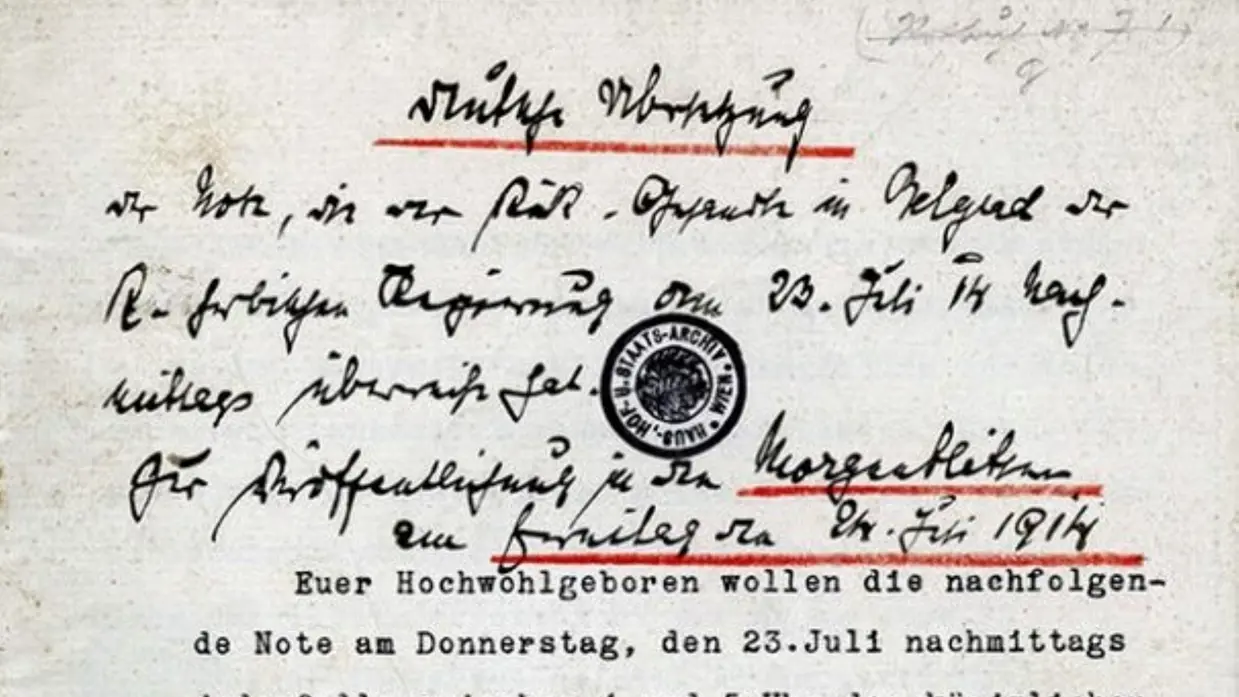 Deutsche Übersetzung
der Note, die der K.u.K. Gesandte in Belgrad der
K. serbischen Regierung am 23. Juli 14 Nach-
mittags überreicht hat.
HAUS-, HOF- U. STAATS-ARCHIV • WIEN •
Zur Veröffentlichung in den Morgenblättern
am Freitag den 24. Juli 1914
Euer Hochwohlgeboren wollen die nachfolgen-
de Note am Donnerstag, den 23.Juli nachmittags